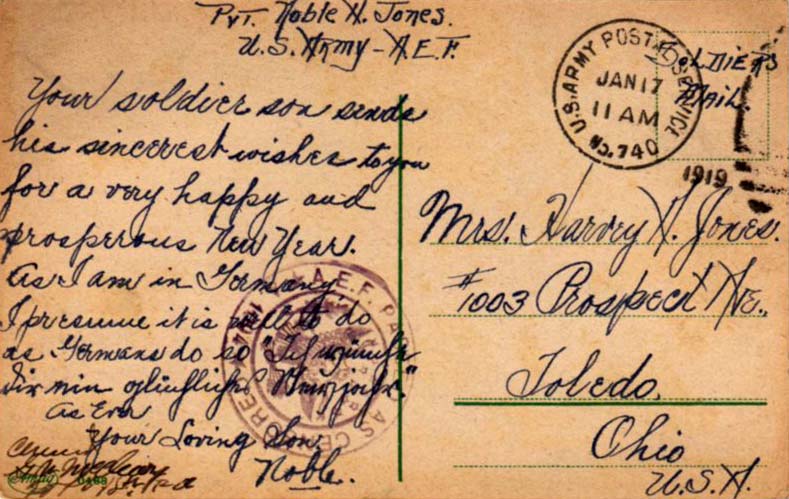 Pvt. Noble H. Jones.
U.S. Army - A.E.F.
Soldiers
Mail.
U.S. ARMY POSTAL SERVICE
JAN 17
11 AM
No. 740
1919
Your soldier son sends
his sincerest wishes to you
for a very happy and
prosperous New Year.
As I am in Germany,
I presume it is well to do
as Germans do so "Ich wünsche
dir ein glückliches Neujahr."
As Ever
Your Loving Son
Noble.
Mrs. Harvey H. Jones.
#1003 Prospect Ave.,
Toledo,
Ohio
U.S.A.
A.E.F. PASSED AS CENSORED